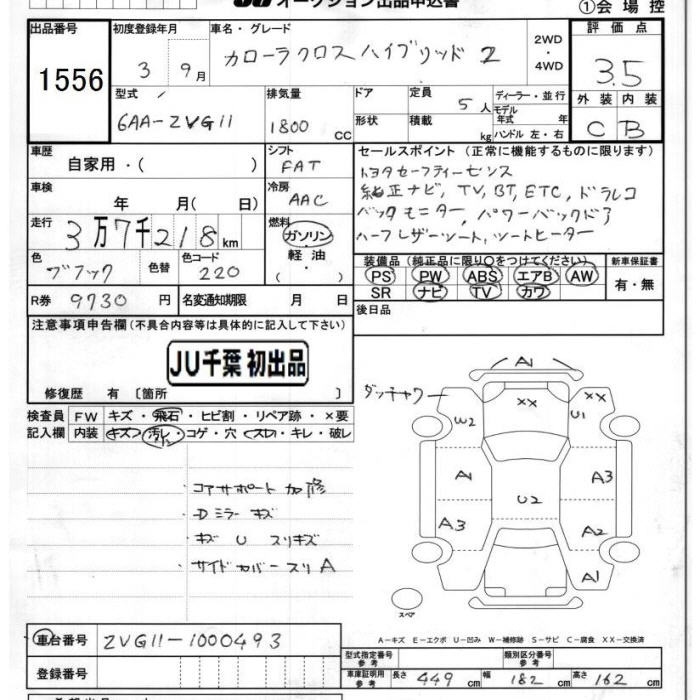 オークション出品申込書
①会場控
出品番号 初度登録年月 車名・グレード 2WD ・ 4WD 評価点
1556 3 9月 カローラクロス ハイブリッド Z 3.5
型式 排気量 ドア 定員 5人 ディーラー・並行 外装 内装
6AA-ZVG11 1800 CC 形状 積載 kg モデル年式 年式 ハンドル 左・右 C B
車歴 自家用・( ) シフト FAT セールスポイント (正常に機能するものに限ります)
トヨタセーフティーセンス
車検 年 月( 日) 冷房 AAC 純正ナビ, TV, BT, ETC, ドラレコ
バックモニター, パワーバックドア
走行 3万7千218km 燃料 ガソリン・軽油・( ) ハーフレザーシート, シートヒーター
色 ブラック 色替 色コード 220 装備品 (純正品に限り○をつけてください) 新車保証書
PS PW ABS エアB AW 有・無
SR ナビ TV カワ
R券 9730円 名変通知期限 月 日 後日品
注意事項申告欄 (不具合内容等は具体的に記入して下さい)
JU千葉 初出品
修復歴 有 〔箇所 〕
検査員 FW キズ・飛石・ヒビ割・リペア跡・×要
記入欄 内装 キズ・汚レ・コゲ・穴・スレ・キレ・破レ
コアサポート加修
Dミラーキズ
キズ U スリキズ
サイドカバースリ A
A1
ダッチャク
XX
W2 U1
A1 A3
U2
A3 A2
A1
スペア
A-キズ E-エクボ U-凹み W-補修跡 S-サビ C-腐食 XX-交換済
車台番号 ZVG11-1000493
型式指定番号 参考 類別区分番号 参考
登録番号 車庫証明用 参考 長さ 449 cm 幅 182 cm 高さ 162 cm